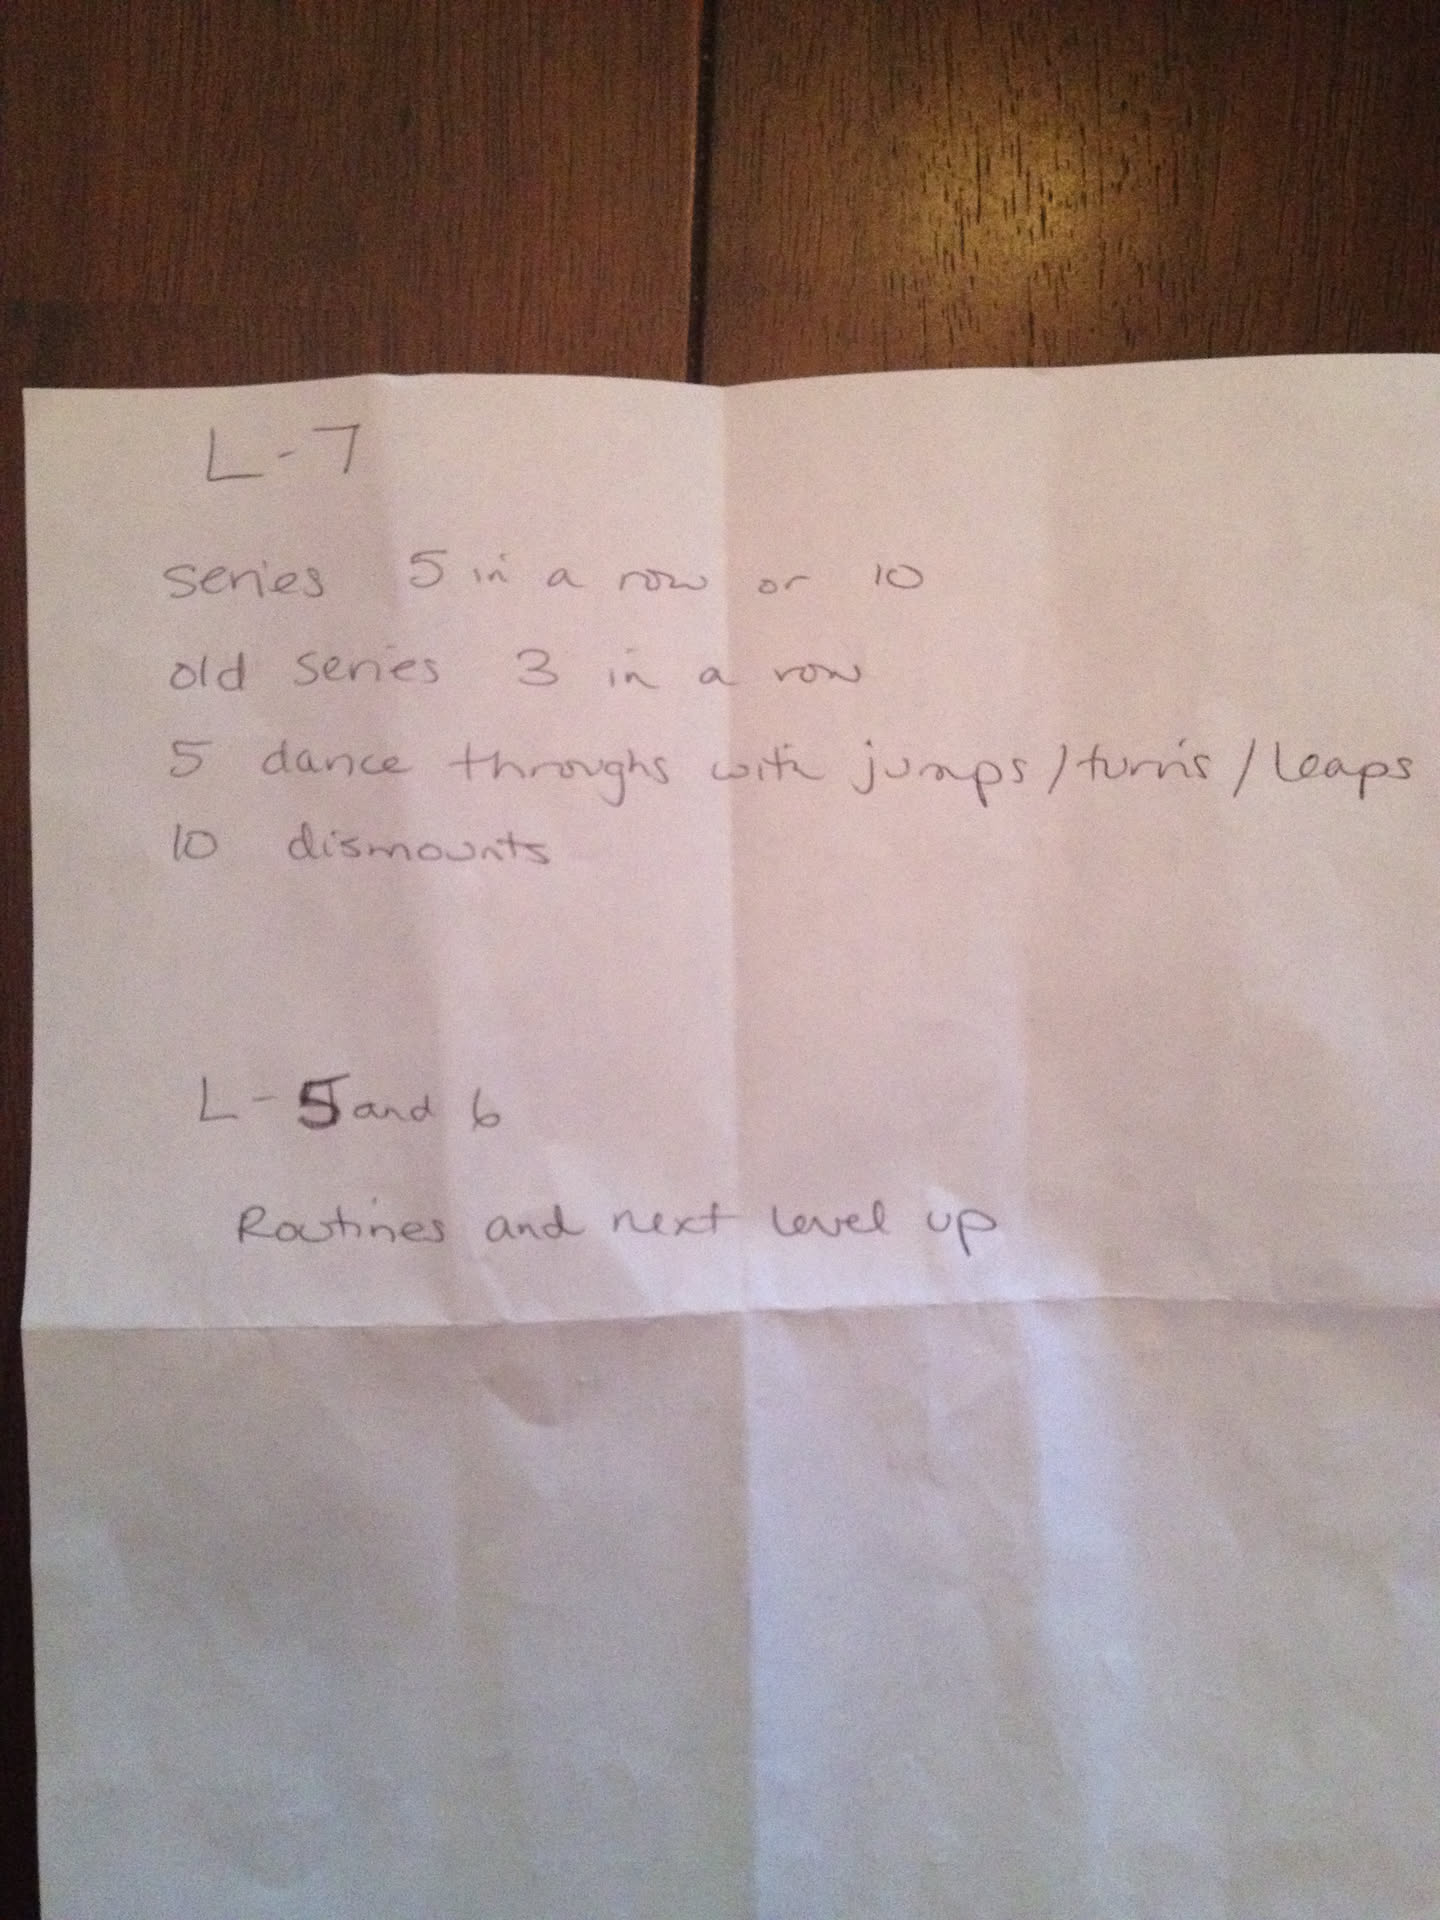 L-7
series 5 in a row or 10
old series 3 in a row
5 dance throughs with jumps/turns/leaps
10 dismounts
L-5 and 6
Routines and next level up